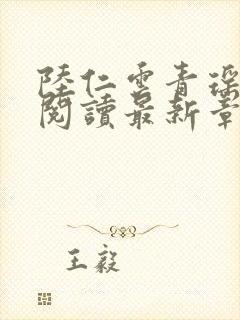 陸仁雲青瑶
閱讀最新章
王毅